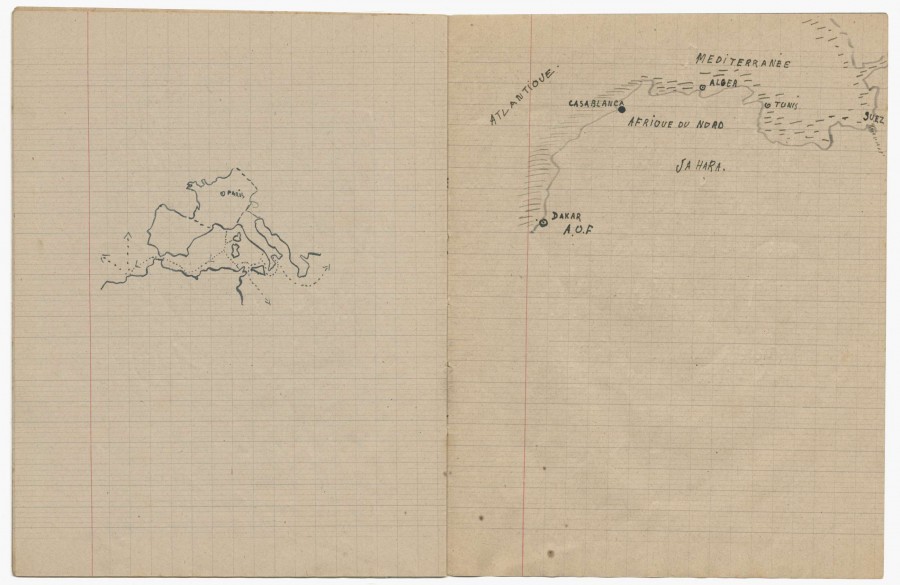 PARIS
ATLANTIQUE.
MEDITERRANÉE
ALGER
CASABLANCA
TUNIS
AFRIQUE DU NORD
SUEZ
SAHARA.
DAKAR
A.O.F